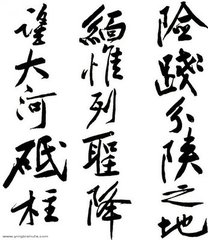 險踐分陝之地
緬惟列聖降
望大河砥柱
www.yingbishufa.com